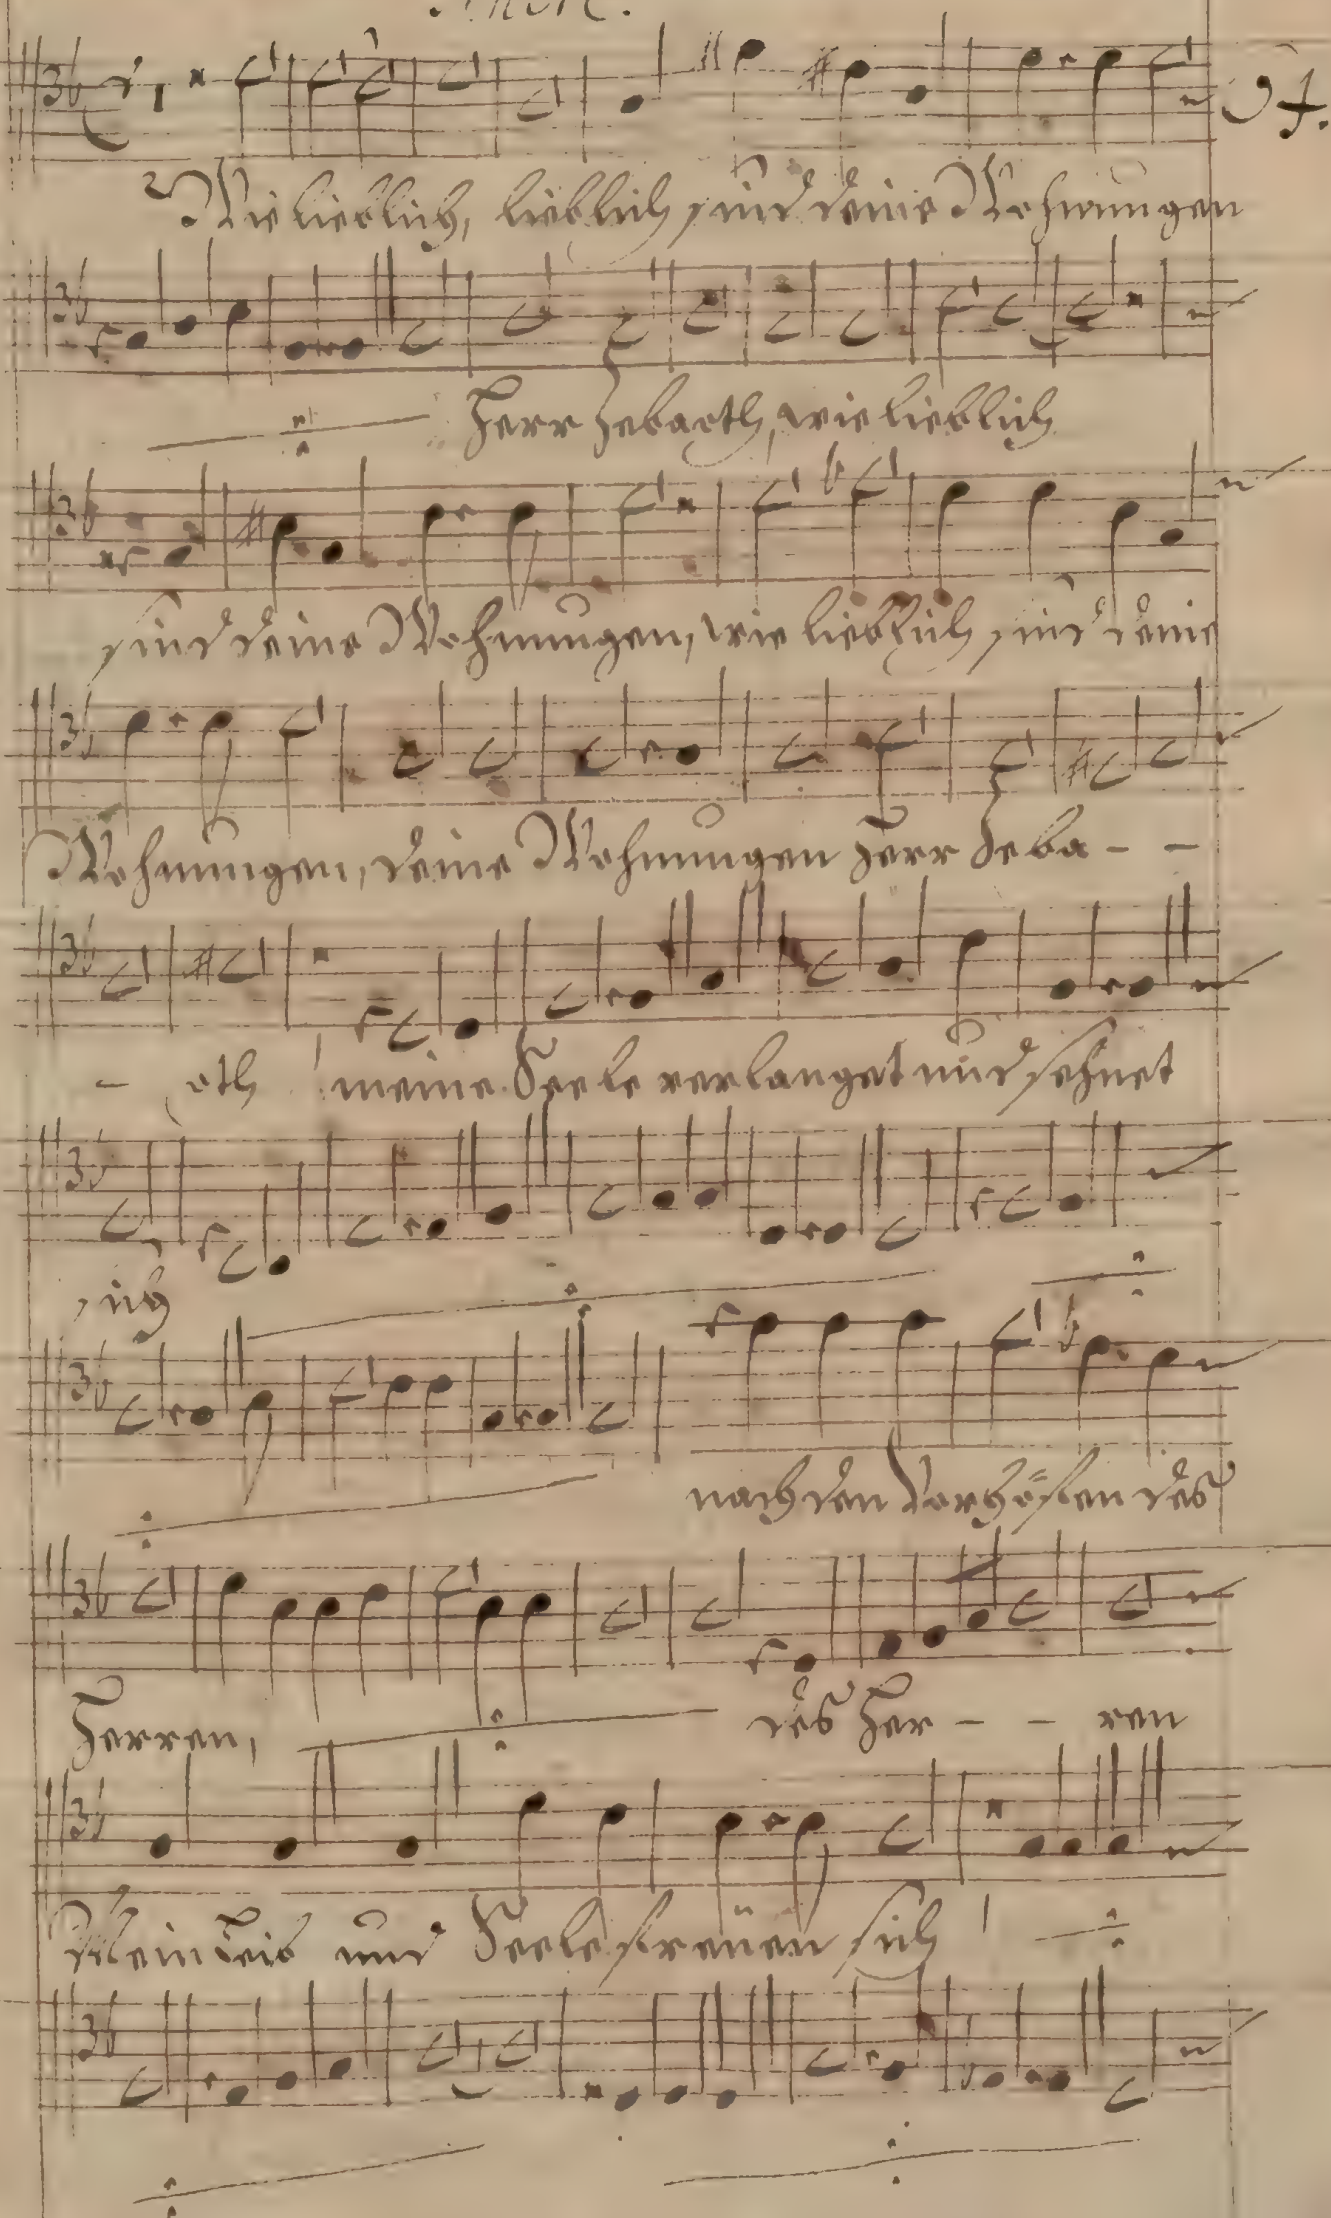 94.
Wie lieblich, lieblich sind deine Wohnungen
Herr Zebaoth, wie lieblich
sind deine Wohnungen, wie lieblich sind deine
Wohnungen, deine Wohnungen Herr Zeba - -
- oth meine Seele verlanget und sehnet
sich
nach den Vorhöfen des
Herren, des Her - - ren
Mein Leib und Seele freüen sich